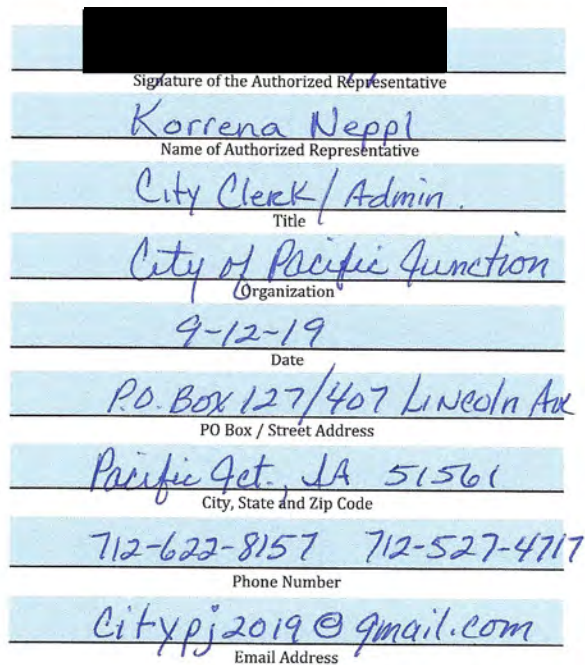 Signature of the Authorized Representative
Korrena Neppl
Name of Authorized Representative
City Clerk / Admin.
Title
City of Pacific Junction
Organization
9-12-19
Date
P.O. Box 127/407 Lincoln Ave
PO Box / Street Address
Pacific Jct., IA 51561
City, State and Zip Code
712-622-8157 712-527-4717
Phone Number
Citypj2019@gmail.com
Email Address